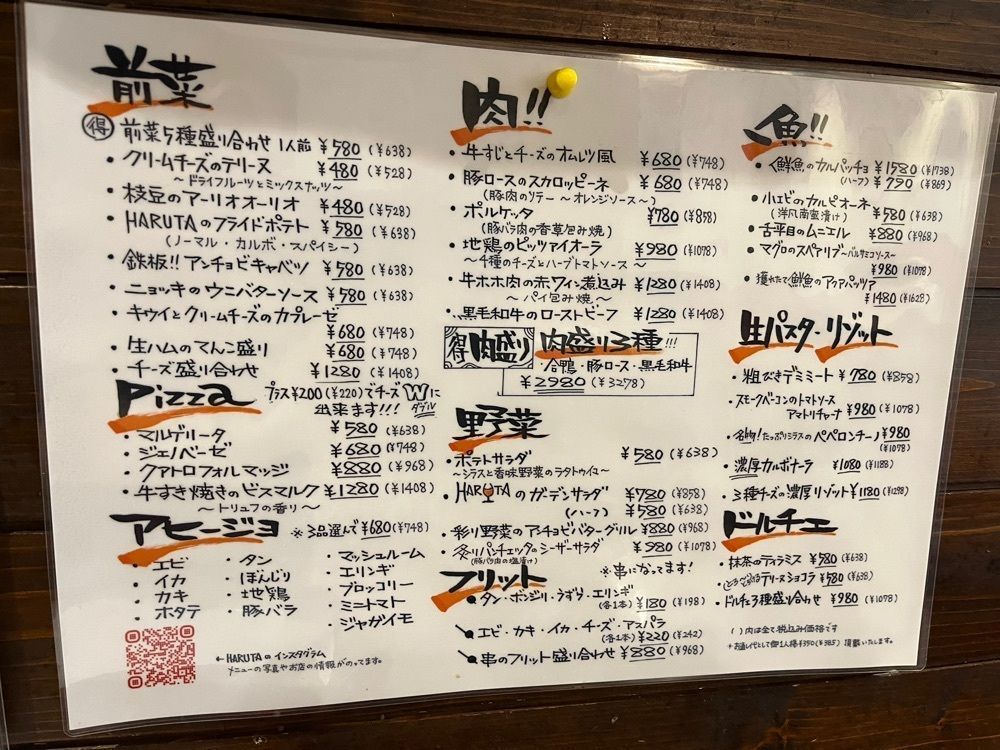 前菜
得 前菜5種盛り合わせ 1人前 ¥580(¥638)
・クリームチーズのテリーヌ ¥480(¥528)
～ドライフルーツとミックスナッツ～
・枝豆のアーリオオーリオ ¥480(¥528)
・HARUTAのフライドポテト ¥580(¥638)
(ノーマル・カルボ・スパイシー)
・鉄板!! アンチョビキャベツ ¥580(¥638)
・ニョッキのウニバターソース ¥580(¥638)
・キウイとクリームチーズのカプレーゼ
¥680(¥748)
・生ハムのてんこ盛り ¥680(¥748)
・チーズ盛り合わせ ¥1280(¥1408)
Pizza プラス¥200(¥220)でチーズWに
ダブル
出来ます!!!
・マルゲリータ ¥580(¥638)
・ジェノベーゼ ¥680(¥748)
・クアトロフォルマッジ ¥880(¥968)
・牛すき焼きのビスマルク ¥1280(¥1408)
～トリュフの香り～
アヒージョ ※3品選んで¥680(¥748)
・エビ
・イカ
・カキ
・ホタテ
・タン
・ぼんじり
・地鶏
・豚バラ
・マッシュルーム
・エリンギ
・ブロッコリー
・ミニトマト
・ジャガイモ
←HARUTAのインスタグラム
メニューの写真やお店の情報がのってます。
肉!!
・牛すじとチーズのオムレツ風 ¥680(¥748)
・豚ロースのスカロッピーネ ¥680(¥748)
(豚肉のソテー ～オレンジソース～)
・ポルケッタ ¥780(¥858)
(豚バラ肉の香草包み焼)
・地鶏のピッツァイオーラ ¥980(¥1078)
～4種のチーズとハーブトマトソース～
・牛ホホ肉の赤ワイン煮込み ¥1280(¥1408)
～パイ包み焼～
・黒毛和牛のローストビーフ ¥1280(¥1408)
得 肉盛り 肉盛り3種!!!
・合鴨・豚ロース・黒毛和牛
¥2980(¥3278)
野菜
・ポテトサラダ ¥580(¥638)
～シラスと香味野菜のラタトゥイユ～
・HARUTAのガーデンサラダ ¥780(¥858)
(ハーフ) ¥580(¥638)
・彩り野菜のアンチョビバターグリル ¥880(¥968)
・炙りパンチェッタのシーザーサラダ ¥980(¥1078)
(豚バラ肉の塩漬け)
フリット ※串になってます!
タン・ボンジリ・うずら・エリンギ
(各1本) ¥180(¥198)
エビ・カキ・イカ・チーズ・アスパラ
(各1本) ¥220(¥242)
串のフリット盛り合わせ ¥880(¥968)
魚!!
・鮮魚のカルパッチョ ¥1580(¥1738)
(ハーフ) ¥790(¥869)
・小エビのカルピオーネ
(洋風南蛮漬け) ¥580(¥638)
・舌平目のムニエル ¥880(¥968)
・マグロのスペアリブ～バルサミコソース～
¥980(¥1078)
・獲れたて鮮魚のアクアパッツァ
¥1480(¥1628)
生パスタ・リゾット
・粗びきデミミート ¥780(¥858)
・スモークベーコンのトマトソース
アマトリチャーナ ¥980(¥1078)
・名物!たっぷりシラスのペペロンチーノ ¥980
(¥1078)
・濃厚カルボナーラ ¥1080(¥1188)
・3種チーズの濃厚リゾット ¥1180(¥1298)
ドルチェ
・抹茶のティラミス ¥580(¥638)
・テリーヌショコラ ¥580(¥638)
・ドルチェ3種盛り合わせ ¥980(¥1078)
( )内は全て税込み価格です
*お通し代として御1人様¥350(¥385)頂戴いたします。